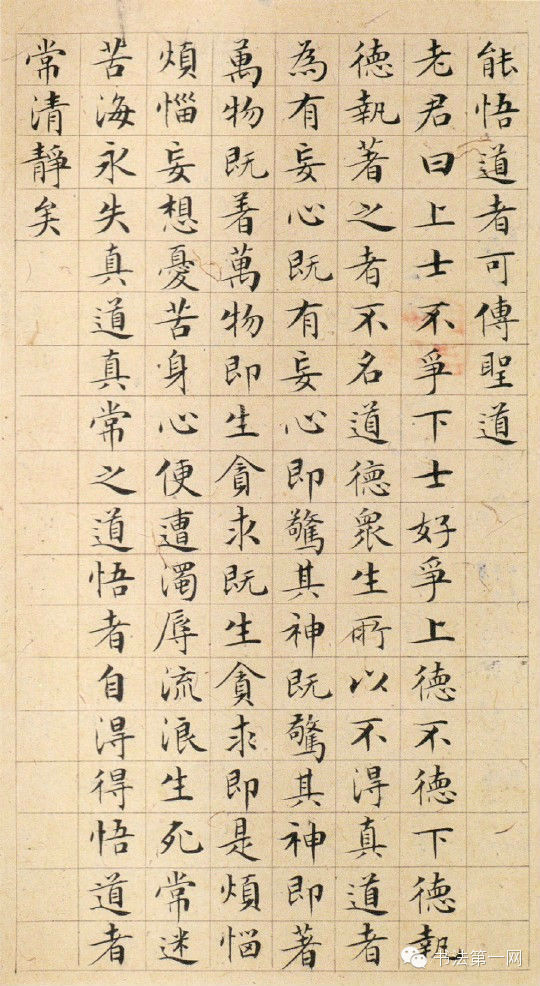 能悟道者可傳聖道
老君曰上士不爭下士好爭上德不德下德執
德執著之者不名道德眾生所以不得真道者
為有妄心既有妄心即驚其神既驚其神即著
萬物既着萬物即生貪求既生貪求即是煩惱
煩惱妄想憂苦身心便遭濁辱流浪生死常迷
苦海永失真道真常之道悟者自得得悟道者
常清靜矣
书法第一网